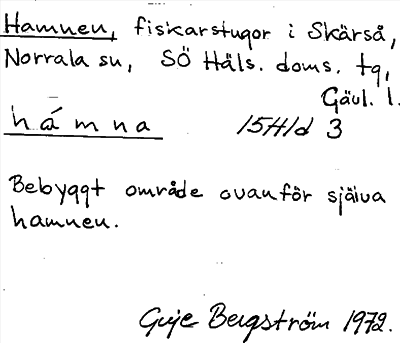 Hamnen, fiskarstugor i Skärså,
Norrala sn, SÖ Häls. doms. tg,
Gävl. l.
hámna 15H1d 3
Bebyggt område ovanför själva
hamnen.
Guje Bergström 1972.